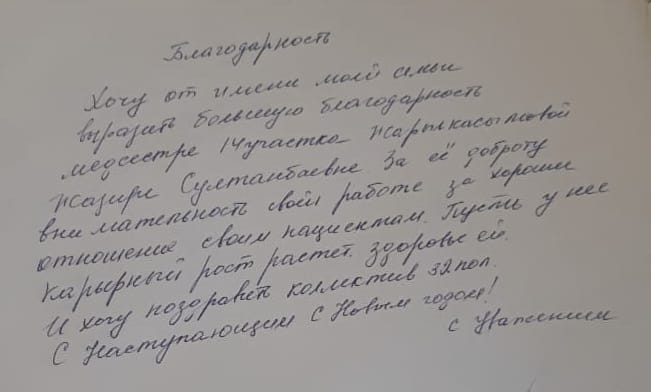 Благодарность
Хочу от имени моей семьи
выразить большую благодарность
медсестре 14участка Жарылкасымовой
Жазире Султанбаевне. За её доброту
внимательность своей работе за хорошии
отношение своим пациентам. Пусть у нее
карьерный рост растет. здоровье ей.
И хочу поздравить коллектив 32пол.
С Наступающим С Новым годом!
с Уважением